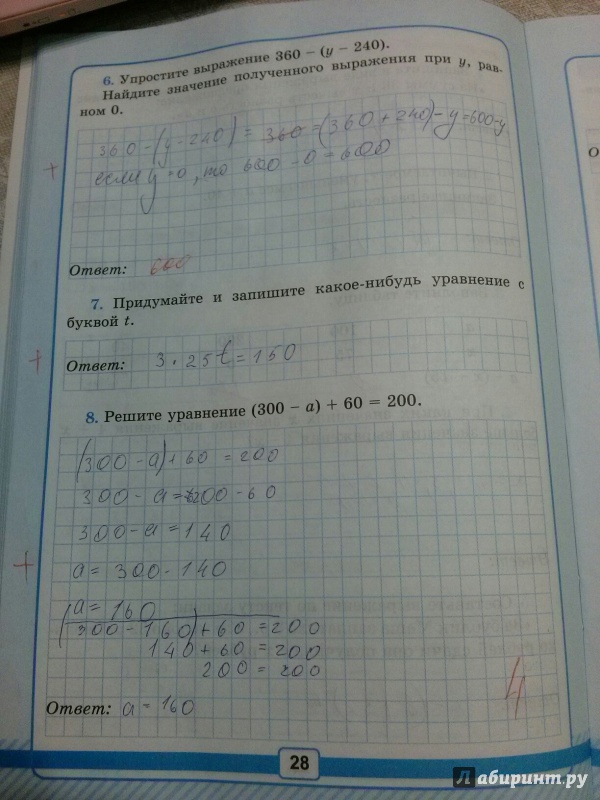 6. Упростите выражение 360 − (y − 240).
Найдите значение полученного выражения при y, рав-
ном 0.
360 − (y − 240) = 360 = (360 + 240) − y = 600 − y
если y = 0, то 600 − 0 = 600
+
Ответ: 600
7. Придумайте и запишите какое-нибудь уравнение с
буквой t.
+
Ответ: 3 · 25t = 150
8. Решите уравнение (300 − a) + 60 = 200.
(300 − a) + 60 = 200
300 − a = 200 − 60
300 − a = 140
+
a = 300 − 140
a = 160
(300 − 160) + 60 = 200
140 + 60 = 200
200 = 200
4
Ответ: a = 160
28
Лабиринт.ру
О